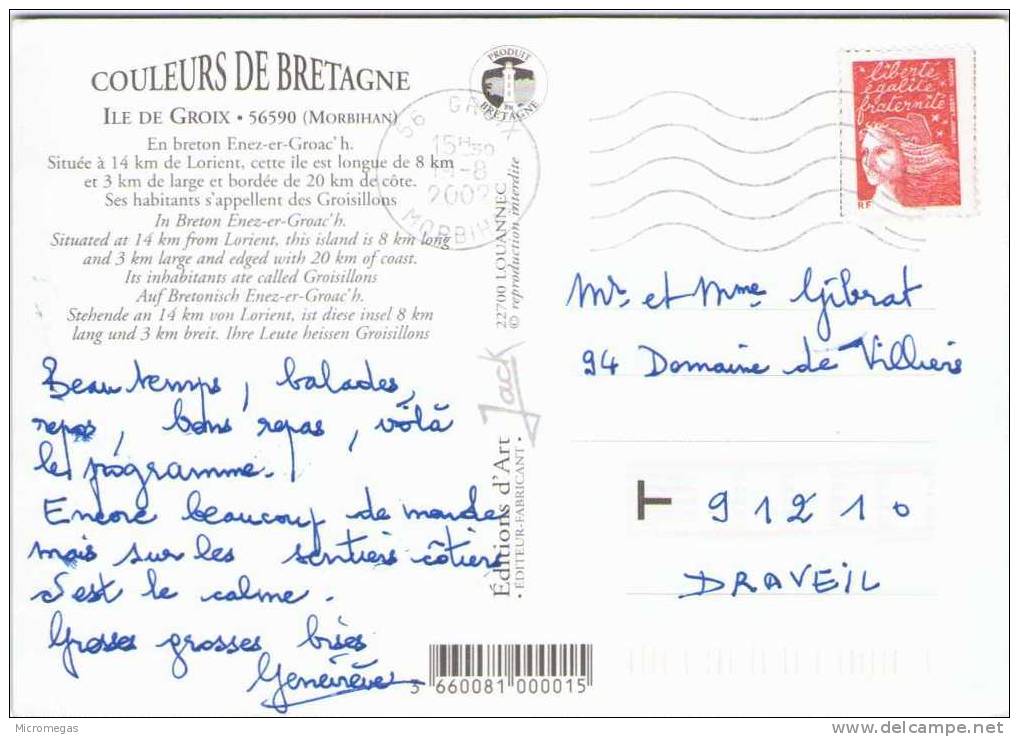 COULEURS DE BRETAGNE
ILE DE GROIX • 56590 (MORBIHAN)
En breton Enez-er-Groac'h.
Située à 14 km de Lorient, cette île est longue de 8 km
et 3 km de large et bordée de 20 km de côte.
Ses habitants s'appellent des Groisillons
In Breton Enez-er-Groac'h.
Situated at 14 km from Lorient, this island is 8 km long
and 3 km large and edged with 20 km of coast.
Its inhabitants ate called Groisillons
Auf Bretonisch Enez-er-Groac'h.
Stehende an 14 km von Lorient, ist diese insel 8 km
lang und 3 km breit. Ihre Leute heissen Groisillons
Beau temps, balades,
repos, bons repas, voilà
le programme.
Encore beaucoup de monde
mais sur les sentiers côtiers
c'est le calme.
Grosses grosses bises
Geneviève
PRODUIT
EN
BRETAGNE
56 GROIX
15H30
14-8
2002
MORBIHAN
Éditions d'Art Jack
• ÉDITEUR-FABRICANT •
22700 LOUANNEC
© reproduction interdite
liberté
égalité
fraternité
RF
Mr et Mme Gibrat
94 Domaine de Villiers
T 91210
DRAVEIL
3 660081 000015
Micromegas
delcampe.net